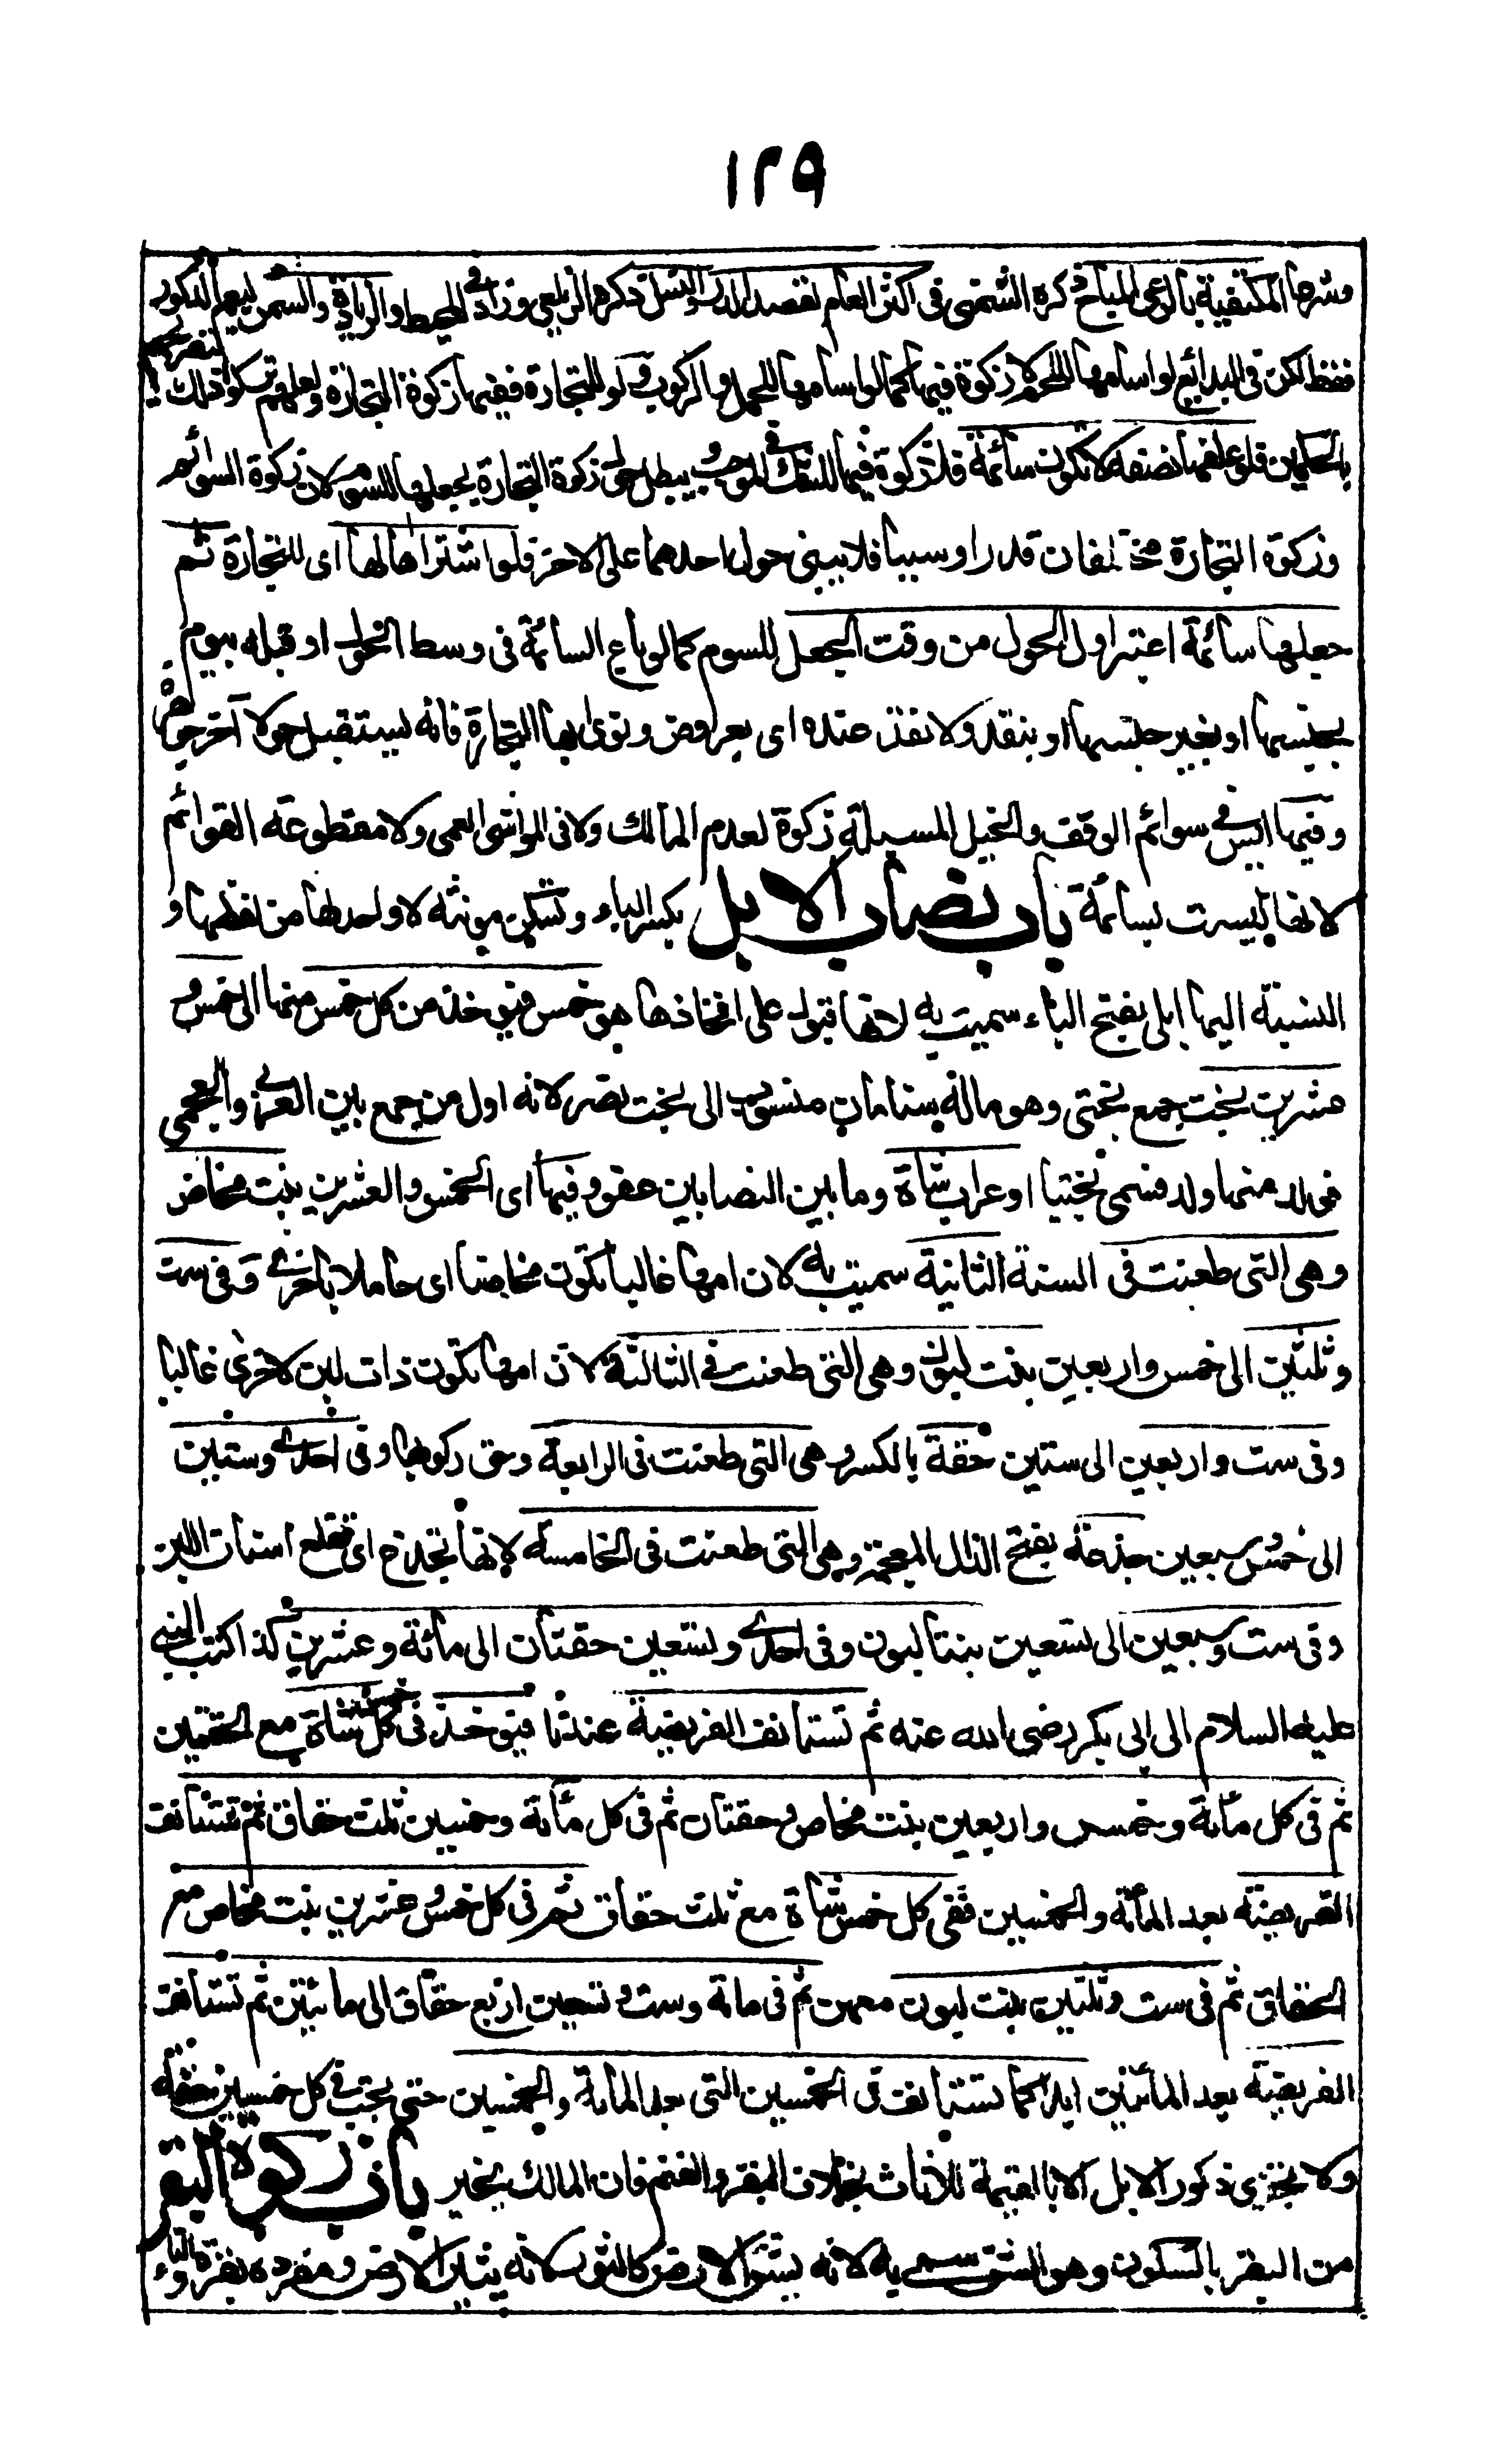 ١٢٩
وشرعا المكتفية بالرعي المباح ذكره الشمني في اكثر العام لقصد الدر والنسل ذكره الزيلعي وزاد في المحيط والزيادة والسمن ليعم الذكور
فقط لكن في البدائع لو اسامها للحم لا زكوة فيها كما لو اسامها للحمل والركوب ولو للتجارة ففيها زكوة التجارة ولعلهم تركوا ذلك لتصريحهم
بالحكمين فلو علفها نصفه لا تكون سائمة فلا زكوة فيها للشك في الموجب ويبطل حول زكوة التجارة بجعلها للسوم لان زكوة السوائم
وزكوة التجارة مختلفان قدرا وسببا فلا يبنى حول احدهما على الاخر فلو اشتراها لها اى للتجارة ثم
جعلها سائمة اعتبر اول الحول من وقت الجعل للسوم كما لو باع السائمة فى وسط الحول او قبله بيوم
بجنسها او بغير جنسها او بنقد ولا نقد عنده اى بعروض ونوى بها التجارة فانه يستقبل حولا آخر جوهرة
وفيها ليس في سوائم الوقف والخيل المسبلة زكوة لعدم المالك ولا فى المواشى العمى ولا مقطوعة القوائم
لانها ليست بسائمة باب نصاب الابل بكسر الباء وتسكن مونثه لا واحد لها من لفظها و
النسبة اليها ابلى بفتح الباء سميت به لانها تبول على افخاذها هو خمس فيوخذ من كل خمس منها الى خمس و
عشرين بخت جمع بختى وهو ماله سنامان منسوب الى بخت نصر لانه اول من جمع بين العربى والعجمى
فولد منهما ولد فسمى بختيا او عراب شاة وما بين النصابين عفو وفيها اى الخمس والعشرين بنت مخاض
وهى التى طعنت فى السنة الثانية سميت به لان امها غالبا تكون مخاضا اى حاملا باخرى وفى ست
وثلثين الى خمس واربعين بنت لبون وهى التى طعنت فى الثالثة لان امها تكون ذات لبن لاخرى غالبا
وفى ست واربعين الى ستين حقة بالكسر وهى التى طعنت فى الرابعة وحق ركوبها وفى احدى وستين
الى خمس وسبعين جذعة بفتح الذال المعجمة وهى التى طعنت فى الخامسة لانها تجذع اى تقلع اسنان اللبن
وفى ست وسبعين الى تسعين بنتا لبون وفى احدى وتسعين حقتان الى مائة وعشرين كذا كتب النبى
عليه السلام الى ابى بكر رضى الله عنه ثم تستأنف الفريضة عندنا فيوخذ فى كل خمس شاة مع الحقتين
ثم فى كل مائة وخمس واربعين بنت مخاض وحقتان ثم فى كل مائة وخمسين ثلث حقاق ثم تستأنف
الفريضة بعد المائة والخمسين ففى كل خمس شاة مع ثلث حقاق ثم فى كل خمس وعشرين بنت مخاض مع
الحقاق ثم فى ست وثلثين بنت لبون معهن ثم فى مائة وست وتسعين اربع حقاق الى مائتين ثم تستأنف
الفريضة بعد المائتين ابدا كما تستأنف فى الخمسين التى بعد المائة والخمسين حتى يجب فى كل خمسين حقة
ولا يجزى ذكور الابل الا بالقيمة للاناث بخلاف البقر والغنم فان المالك يخير باب زكوة البقر
من البقر بالسكون وهو الشق سمى به لانه يشق الارض كالثور لانه يثير الارض ومفرده بقرة والتاء